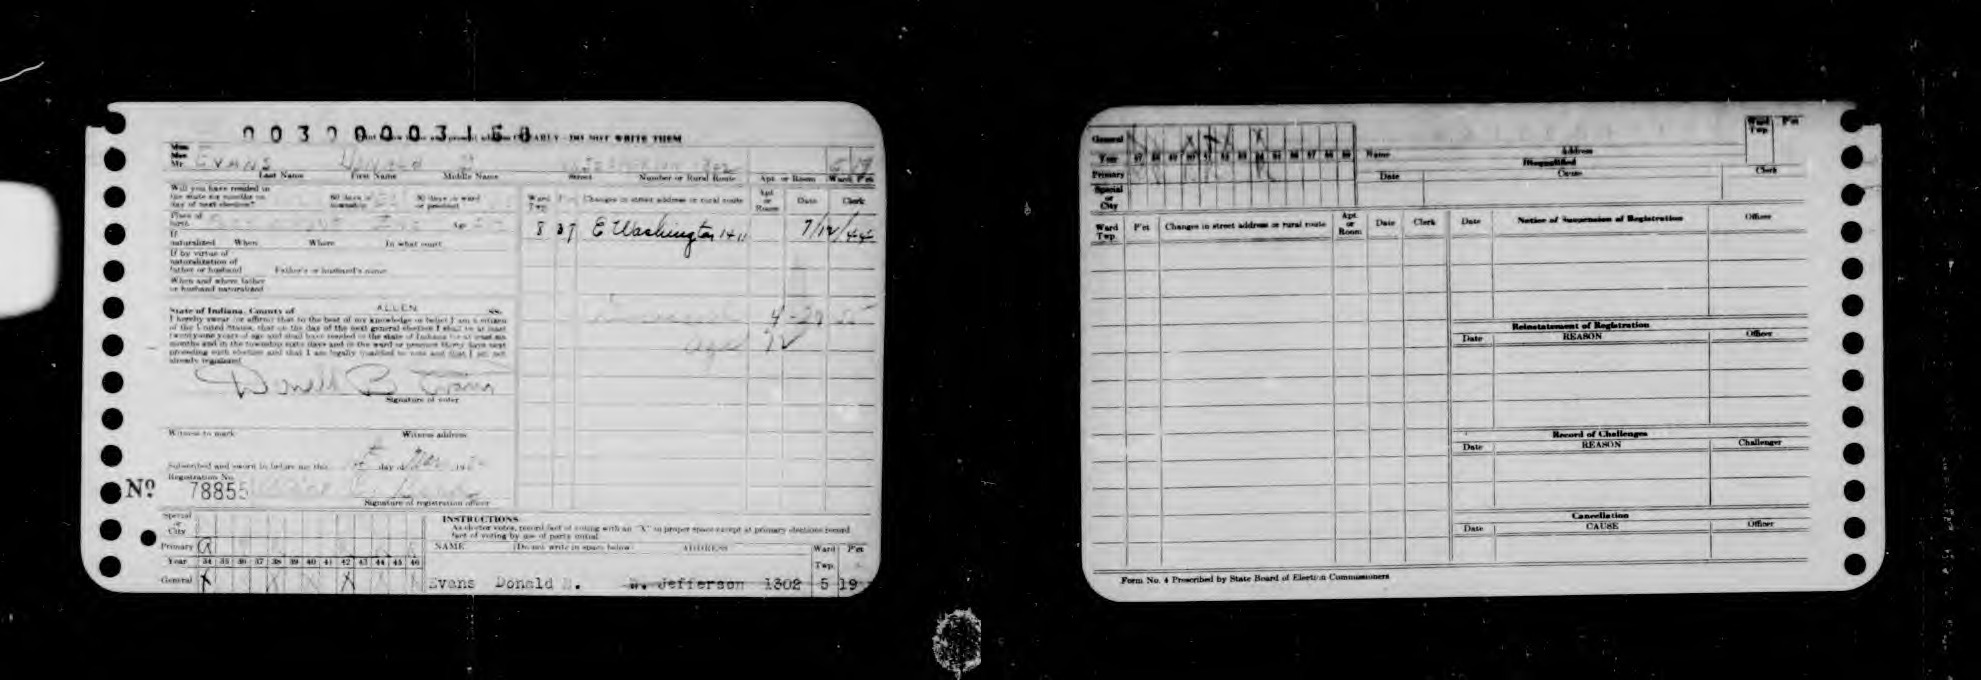 0 0 3 0 0 0 0 3 1 6 0
EARLY - DO NOT WRITE THEM
Mrs.
Mr. EVANS Donald B 1302 5 19
Last Name First Name Middle Name Street Number or Rural Route Apt. or Room Ward P'ct
Will you have resided in
the state six months on
day of next election? 60 days in township 30 days in ward or precinct
Place of
birth Age
If
naturalized When Where In what court
If by virtue of
naturalization of
father or husband Father's or husband's name
When and where father
or husband naturalized
State of Indiana, County of ALLEN SS.
I hereby swear or affirm that to the best of my knowledge or belief I am a citizen
of the United States, that on the day of the next general election I shall be at least
twenty-one years of age and shall have resided in the state of Indiana for at least six
months and in the township sixty days and in the ward or precinct thirty days next
preceding such election and that I am legally qualified to vote and that I am not
already registered.
Donald B Evans
Signature of voter
Witness to mark Witness address
Subscribed and sworn to before me this day of Mar 19
Registration No.
No 78855
Signature of registration officer
Ward Twp. P'ct Changes in street address or rural route Apt. or Room Date Clerk
8 27 E Washington 1411 7/12/44
4-29 55
age 72
Special
or
City
Primary R
Year 34 35 36 37 38 39 40 41 42 43 44 45 46
General X X X
INSTRUCTIONS
As elector votes, record fact of voting with an "X" in proper space except at primary elections record
fact of voting by use of party initial
NAME (Do not write in space below) ADDRESS Ward Twp. P'ct
Evans Donald B. W. Jefferson 1302 5 19
General
Year 47 48 49 50 51 52 53 54 55 56 57 58 59
Primary
Special
or
City
Name Address Ward Twp. P'ct
Disqualified
Date Cause Clerk
Ward Twp. P'ct Changes in street address or rural route Apt. or Room Date Clerk
Date Notice of Suspension of Registration Officer
Reinstatement of Registration
Date REASON Officer
Record of Challenges
Date REASON Challenger
Cancellation
Date CAUSE Officer
Form No. 4 Prescribed by State Board of Election Commissioners